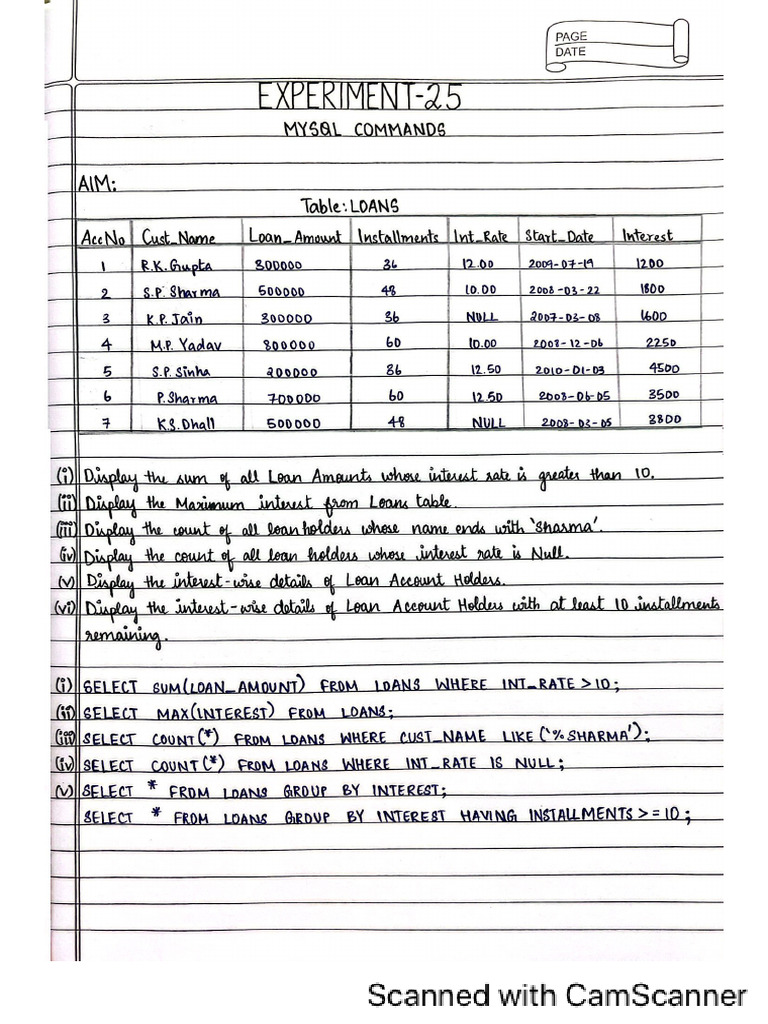 PAGE
DATE
EXPERIMENT-25
MYSQL COMMANDS
AIM:
Table: LOANS
AccNo Cust_Name Loan_Amount Installments Int_Rate Start_Date Interest
1 R.K. Gupta 300000 36 12.00 2009-07-19 1200
2 S.P. Sharma 500000 48 10.00 2008-03-22 1800
3 K.P. Jain 300000 36 NULL 2007-03-08 1600
4 M.P. Yadav 800000 60 10.00 2008-12-06 2250
5 S.P. Sinha 200000 36 12.50 2010-01-03 4500
6 P. Sharma 700000 60 12.50 2008-06-05 3500
7 K.S. Dhall 500000 48 NULL 2008-03-05 3800
(i) Display the sum of all Loan Amounts whose interest rate is greater than 10.
(ii) Display the Maximum interest from Loans table.
(iii) Display the count of all loan holders whose name ends with 'Sharma'.
(iv) Display the count of all loan holders whose interest rate is Null.
(v) Display the interest-wise details of Loan Account Holders.
(vi) Display the interest-wise details of Loan Account Holders with at least 10 installments
remaining.
(i) SELECT SUM(LOAN_AMOUNT) FROM LOANS WHERE INT_RATE >10;
(ii) SELECT MAX(INTEREST) FROM LOANS;
(iii) SELECT COUNT(*) FROM LOANS WHERE CUST_NAME LIKE ('%SHARMA');
(iv) SELECT COUNT(*) FROM LOANS WHERE INT_RATE IS NULL;
(v) SELECT * FROM LOANS GROUP BY INTEREST;
SELECT * FROM LOANS GROUP BY INTEREST HAVING INSTALLMENTS >= 10;
Scanned with CamScanner